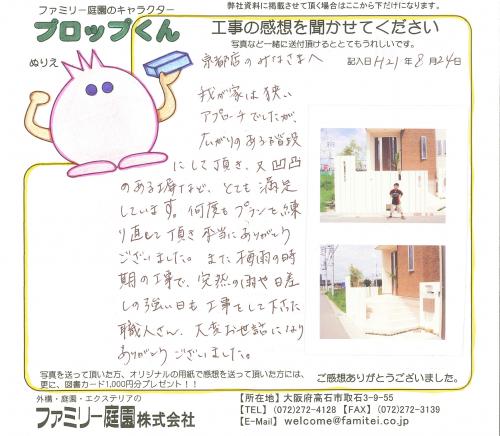 弊社資料に掲載させて頂く場合はここから下だけになります。
ファミリー庭園のキャラクター
プロップくん
ぬりえ
工事の感想を聞かせてください
写真など一緒に送付頂けるととてもうれしいです。
記入日H21年8月24日
京都店のみなさまへ
我が家は狭い
アプローチでしたが、
広がりのある階段
にして頂き、又凹凸
のある塀など、とても満足
しています。何度もプランを練
り直して頂き本当にありがとう
ございました。また梅雨の時
期の工事で、突然の雨や日差
しの強い日も工事をして下さった
職人さん、大変お世話になり
ありがとうございました。
写真を送って頂いた方、オリジナルの用紙で感想を送って頂いた方には、
更に、図書カード1,000円分プレゼント！！
ご感想ありがとうございました。
外構・庭園・エクステリアの
ファミリー庭園株式会社
【所在地】大阪府高石市取石3-9-55
【TEL】(072)272-4128 【FAX】(072)272-3139
【E-Mail】 welcome@famitei.co.jp